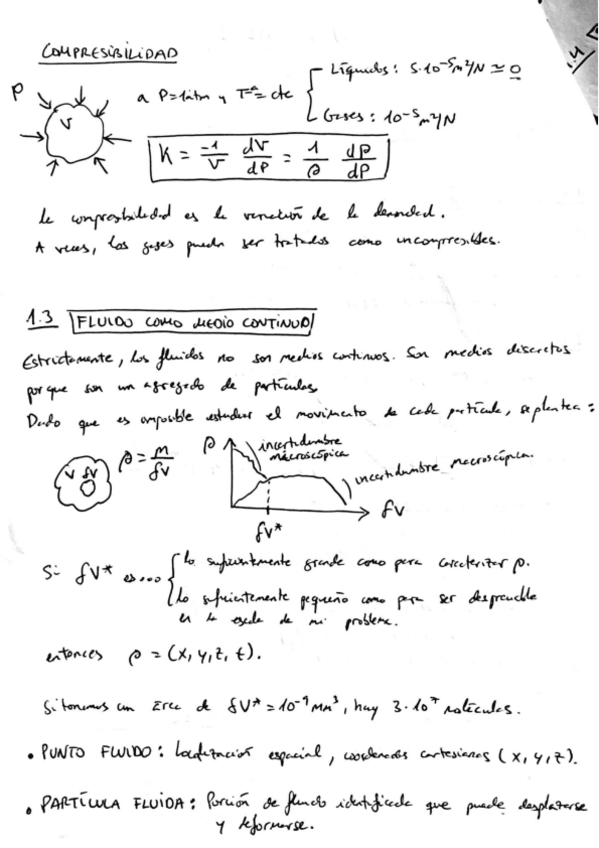 1.4
COMPRESIBILIDAD
P
V
a P=1atm y Tª= cte
Líquidos: 5·10⁻⁵m²/N ≃ 0
Gases: 10⁻⁵m²/N
K = -1/V dV/dP = 1/ρ dρ/dP
la compresibilidad es la variación de la densidad.
A veces, los gases pueden ser tratados como incompresibles.
1.3 FLUIDO COMO MEDIO CONTINUO
Estrictamente, los fluidos no son medios continuos. Son medios discretos
porque son un agregado de partículas
Dado que es imposible estudiar el movimiento de cada partícula, se plantea:
V δV
ρ = m/δV
ρ
incertidumbre
microscópica
incertidumbre macroscópica.
δV
δV*
Si δV* es...
lo suficientemente grande como para caracterizar ρ.
lo suficientemente pequeño como para ser despreciable
en la escala de mi problema.
entonces ρ = (x, y, z, t).
Si tomamos un área de δV* = 10⁻⁹ mm³, hay 3·10⁷ moléculas.
• PUNTO FLUIDO: Localización espacial, coordenadas cartesianas (x, y, z).
• PARTÍCULA FLUIDA: Porción de fluido identificada que puede desplazarse
y deformarse.